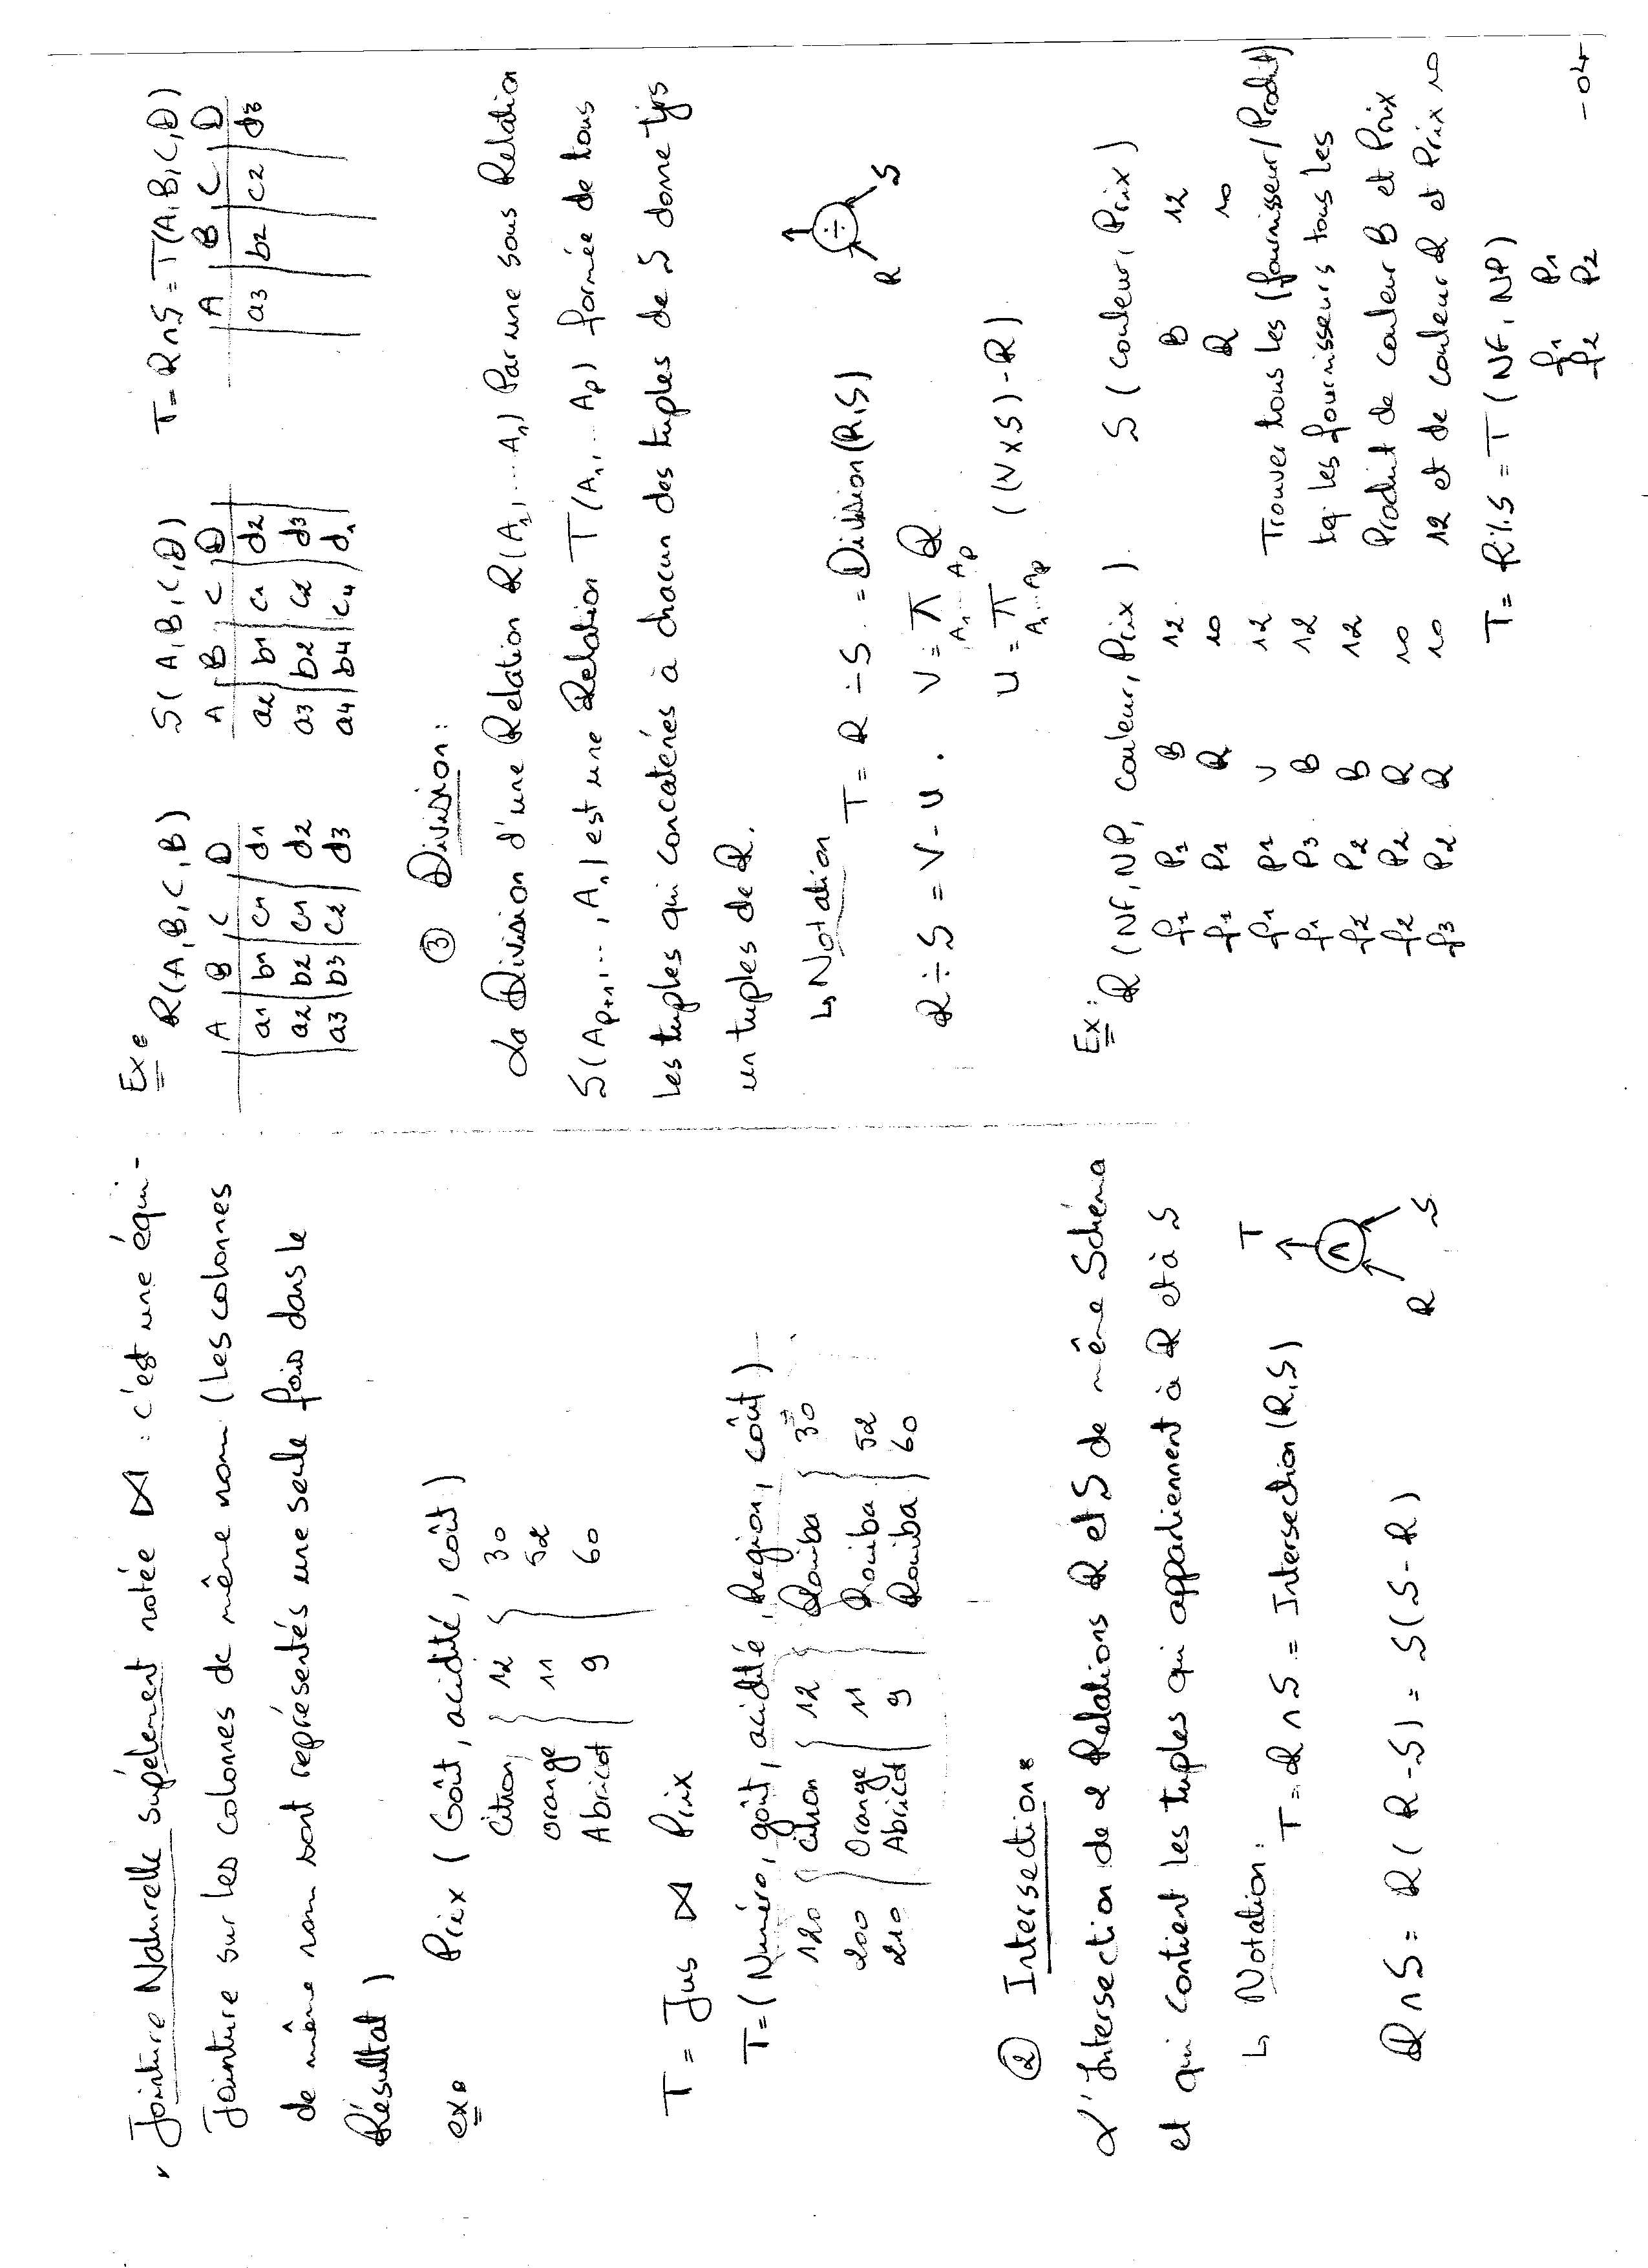 Jointure Naturelle supélement notée ⋈ : c'est une équi-
Jointure sur les colonnes de même nom (Les colonnes
de même nom sont représentés une seule fois dans le
Résultat)
ex: Prix (Goût, acidité, coût)
Citron 12 30
orange 11 52
Abricot 9 60
T = Jus ⋈ Prix
T = (Numéro, goût, acidité, Region, coût)
120 citron 12 Rouiba 30
200 Orange 11 Rouiba 52
210 Abricot 9 Rouiba 60
② Intersection:
L'Intersection de 2 Relations R et S de même Schéma
et qui contient les tuples qui appartiennent à R et à S
↳ Notation:
T = R ∩ S = Intersection (R,S)
T
∩
R S
R ∩ S = R (R - S) = S (S - R)
Ex:
R(A,B,C,B) S(A,B,C,D) T = R ∩ S = T(A,B,C,D)
A B C D A B C D A B C D
a1 b1 c1 d1 a2 b1 c1 d2 a3 b2 c2 d3
a2 b2 c1 d2 a3 b2 c2 d3
a3 b3 c2 d3 a4 b4 c4 d1
③ Division:
La Division d'une Relation R(A1, ... An) Par une sous Relation
S(Ap+1, ..., An) est une Relation T (A1, ... Ap) formée de tous
les tuples qui concaténés à chacun des tuples de S donne tjrs
un tuples de R.
↳ Notation
T = R ÷ S = Division (R,S)
÷
R S
R ÷ S = V - U . V = π A1...Ap R
U = π A1...Ap ((V x S) - R)
Ex:
R (NF, NP, couleur, Prix). S (couleur, Prix)
f1 P1 B 12 B 12
f1 P1 R 10 R 10
f1 P1 V 12 Trouver tous les (fournisseur/Produit)
f1 P3 B 12 tq les fournisseurs tous les
f2 P2 B 12 Produit de couleur B et Prix
f2 P2 R 10 12 et de couleur R et Prix 10
f3 P2 R 10
T = R ÷ S = T (NF, NP)
f1 P1
f2 P2
- 04